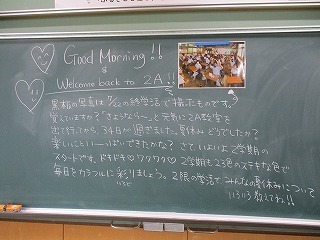 Good Morning!!
&
Welcome back to 2A!!
黒板の写真は7/22の終学活で撮たものです。
覚えていますか？「さようなら〜」と元気に2A教室を
出て行ってから、34日が過ぎました。夏休みどうでしたか？
楽しいこといーっぱいできたかな？さて いよいよ2学期の
スタートです。ドキドキ♡ワクワク♡ 2学期も23色のステキな色で
毎日をカラフルに彩りましょう。2限の学活で、みんなの夏休みについて
いろど
いろいろ教えてね!!